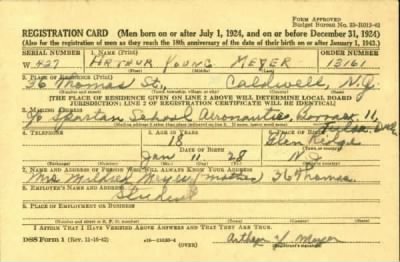 FORM APPROVED
Budget Bureau No. 33-R012-42
REGISTRATION CARD (Men born on or after July 1, 1924, and on or before December 31, 1924)
(Also for the registration of men as they reach the 18th anniversary of the date of their birth on or after January 1, 1943.)
SERIAL NUMBER 1. NAME (Print) ORDER NUMBER
W 427 ARTHUR YOUNG MEYER 13161
2. PLACE OF RESIDENCE (Print)
36 Thomas St, Caldwell, N.J.
[THE PLACE OF RESIDENCE GIVEN ON LINE 2 ABOVE WILL DETERMINE LOCAL BOARD
JURISDICTION; LINE 2 OF REGISTRATION CERTIFICATE WILL BE IDENTICAL]
3. MAILING ADDRESS
c/o Spartan School Aeronautics, 11,
Tulsa Okla
4. TELEPHONE 5. AGE IN YEARS 6. PLACE OF BIRTH
18 Glen Ridge
DATE OF BIRTH
Jan 11 N.J.
7. NAME AND ADDRESS OF PERSON WHO WILL ALWAYS KNOW YOUR ADDRESS
Mrs Mildred Meyer (mother) 36 Thomas
8. EMPLOYER'S NAME AND ADDRESS
Student
9. PLACE OF EMPLOYMENT OR BUSINESS
I AFFIRM THAT I HAVE VERIFIED ABOVE ANSWERS AND THAT THEY ARE TRUE.
DSS Form 1 (Rev. 11-16-42) (OVER) Arthur Y Meyer